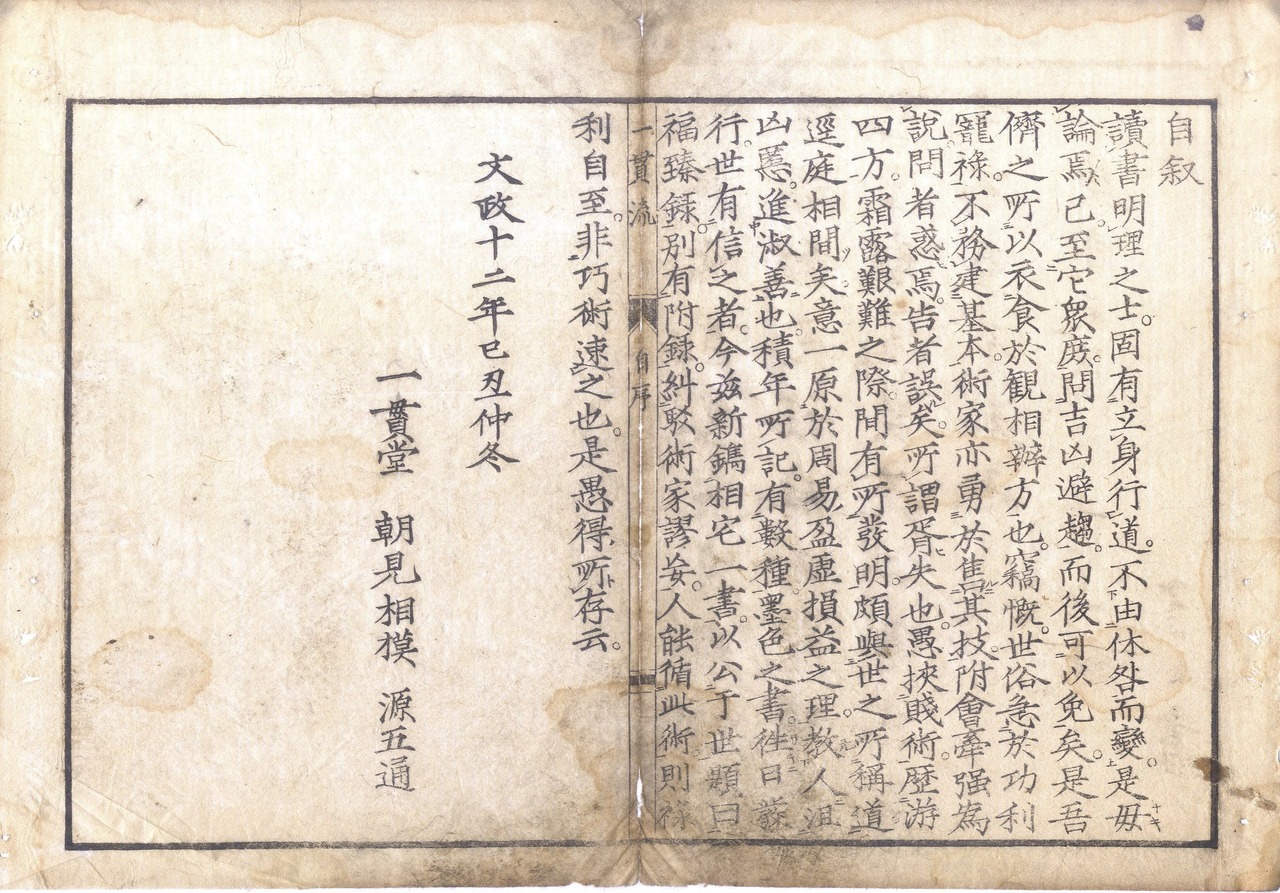 自叙
讀書明理之士。固有立身行道。不由休咎而變。是毋
論焉已。至它衆庶。問吉凶避趨。而後可以免矣。是吾
儕之所以衣食於観相辨方也。竊慨。世俗急於功利
寵祿。不務建基本。術家亦勇於售其技。附會牽强為
説。問者惑焉。告者誤矣。所謂胥失也。愚挾賤術。歴游
四方。霜露艱難之際。間有所發明。頗與世之所稱道
逕庭相間矣。意一原於周易。盈虛損益之理。教人沮
凶慝。進淑善也。積年所記。有數種。墨色之書。徃日蔌
行。世有信之者。今兹新鐫相宅一書。以公于世。題曰
福臻録。別有附録。糾駁術家謬妄。人能循此術。則祿
利自至。非巧術速之也。是愚得所存云。
文政十二年己丑仲冬
一貫堂 朝見相模 源五通
一貫流 自序